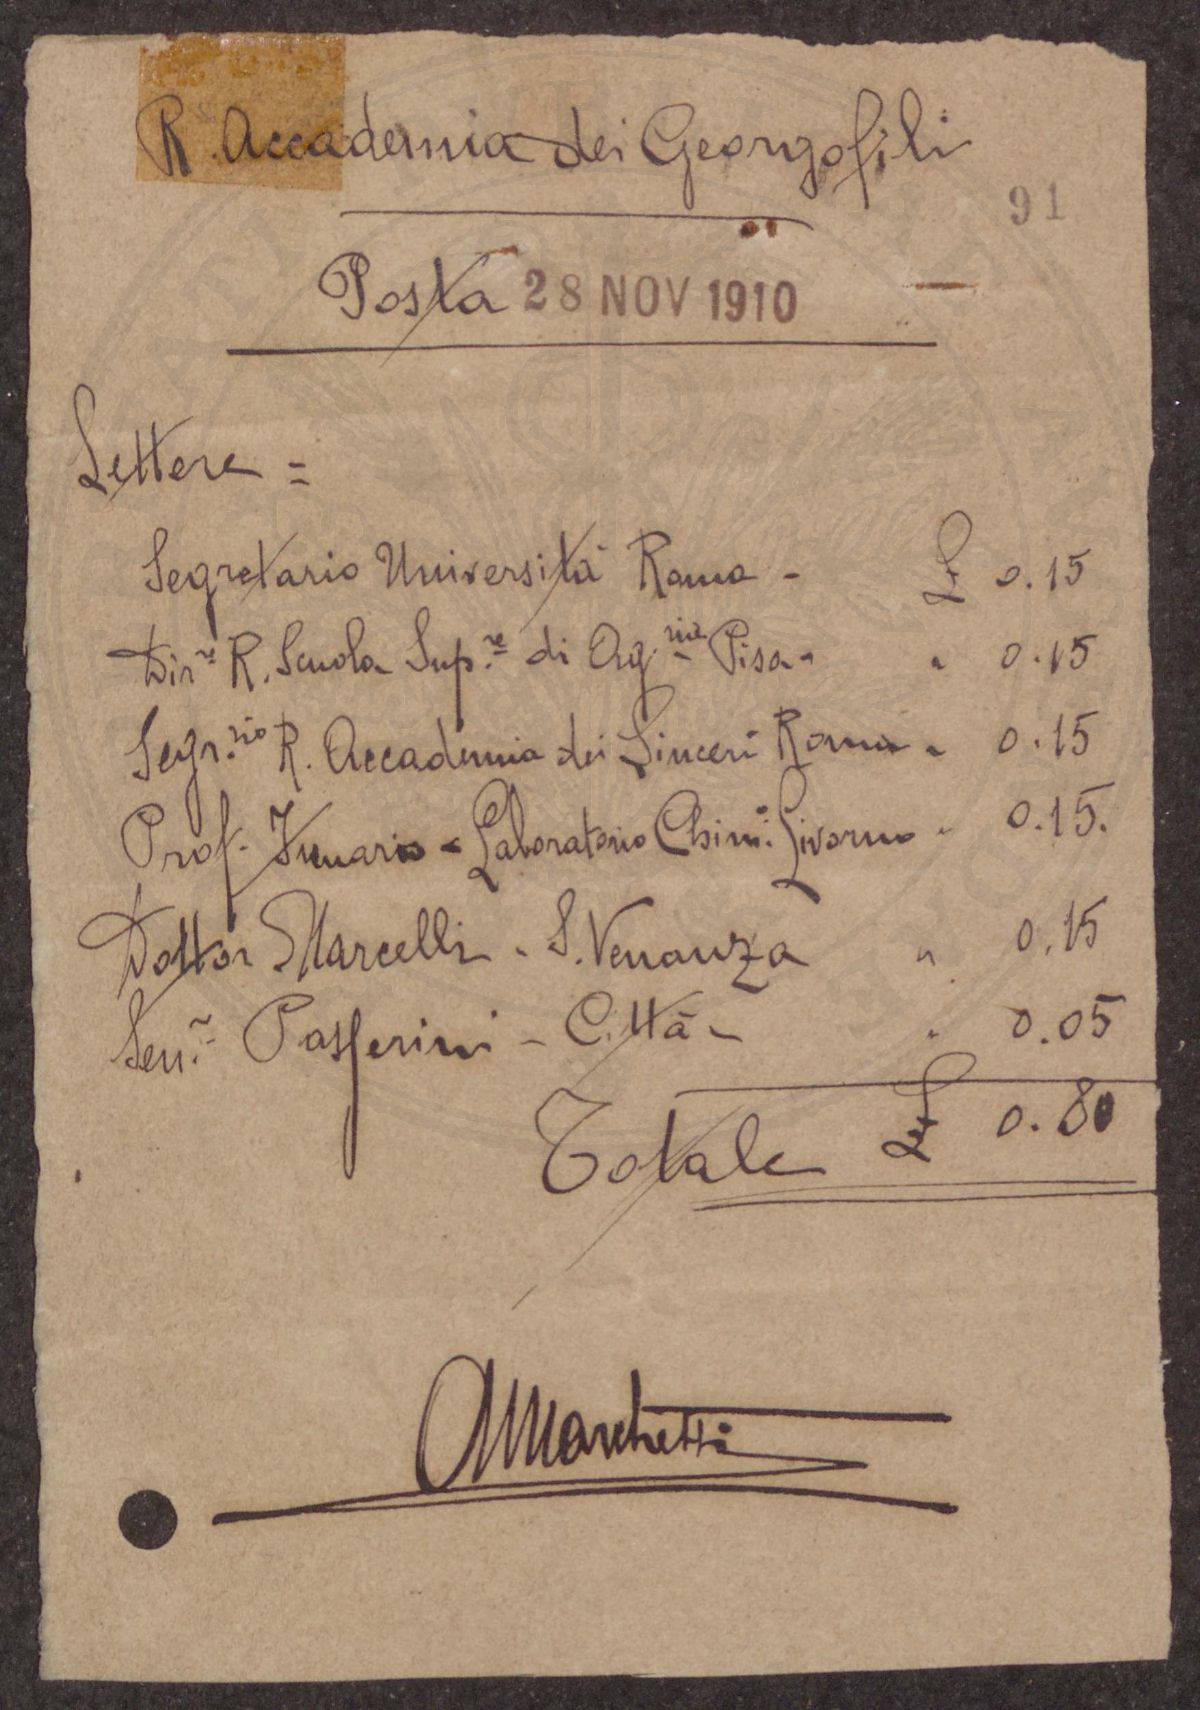 R. Accademia dei Georgofili
91
Posta 28 NOV 1910
Lettere =
Segretario Università Roma - £ 0.15
Dir.re R. Scuola Sup.re di Ag.ria Pisa - " 0.15
Segr.rio R. Accademia dei Lincei Roma " 0.15
Prof. Funaro - Laboratorio Chim. Livorno " 0.15.
Dottor Marcelli - S. Venanza " 0.15
Sen.re Passerini - Città - " 0.05
Totale £ 0.80
AMarchetti